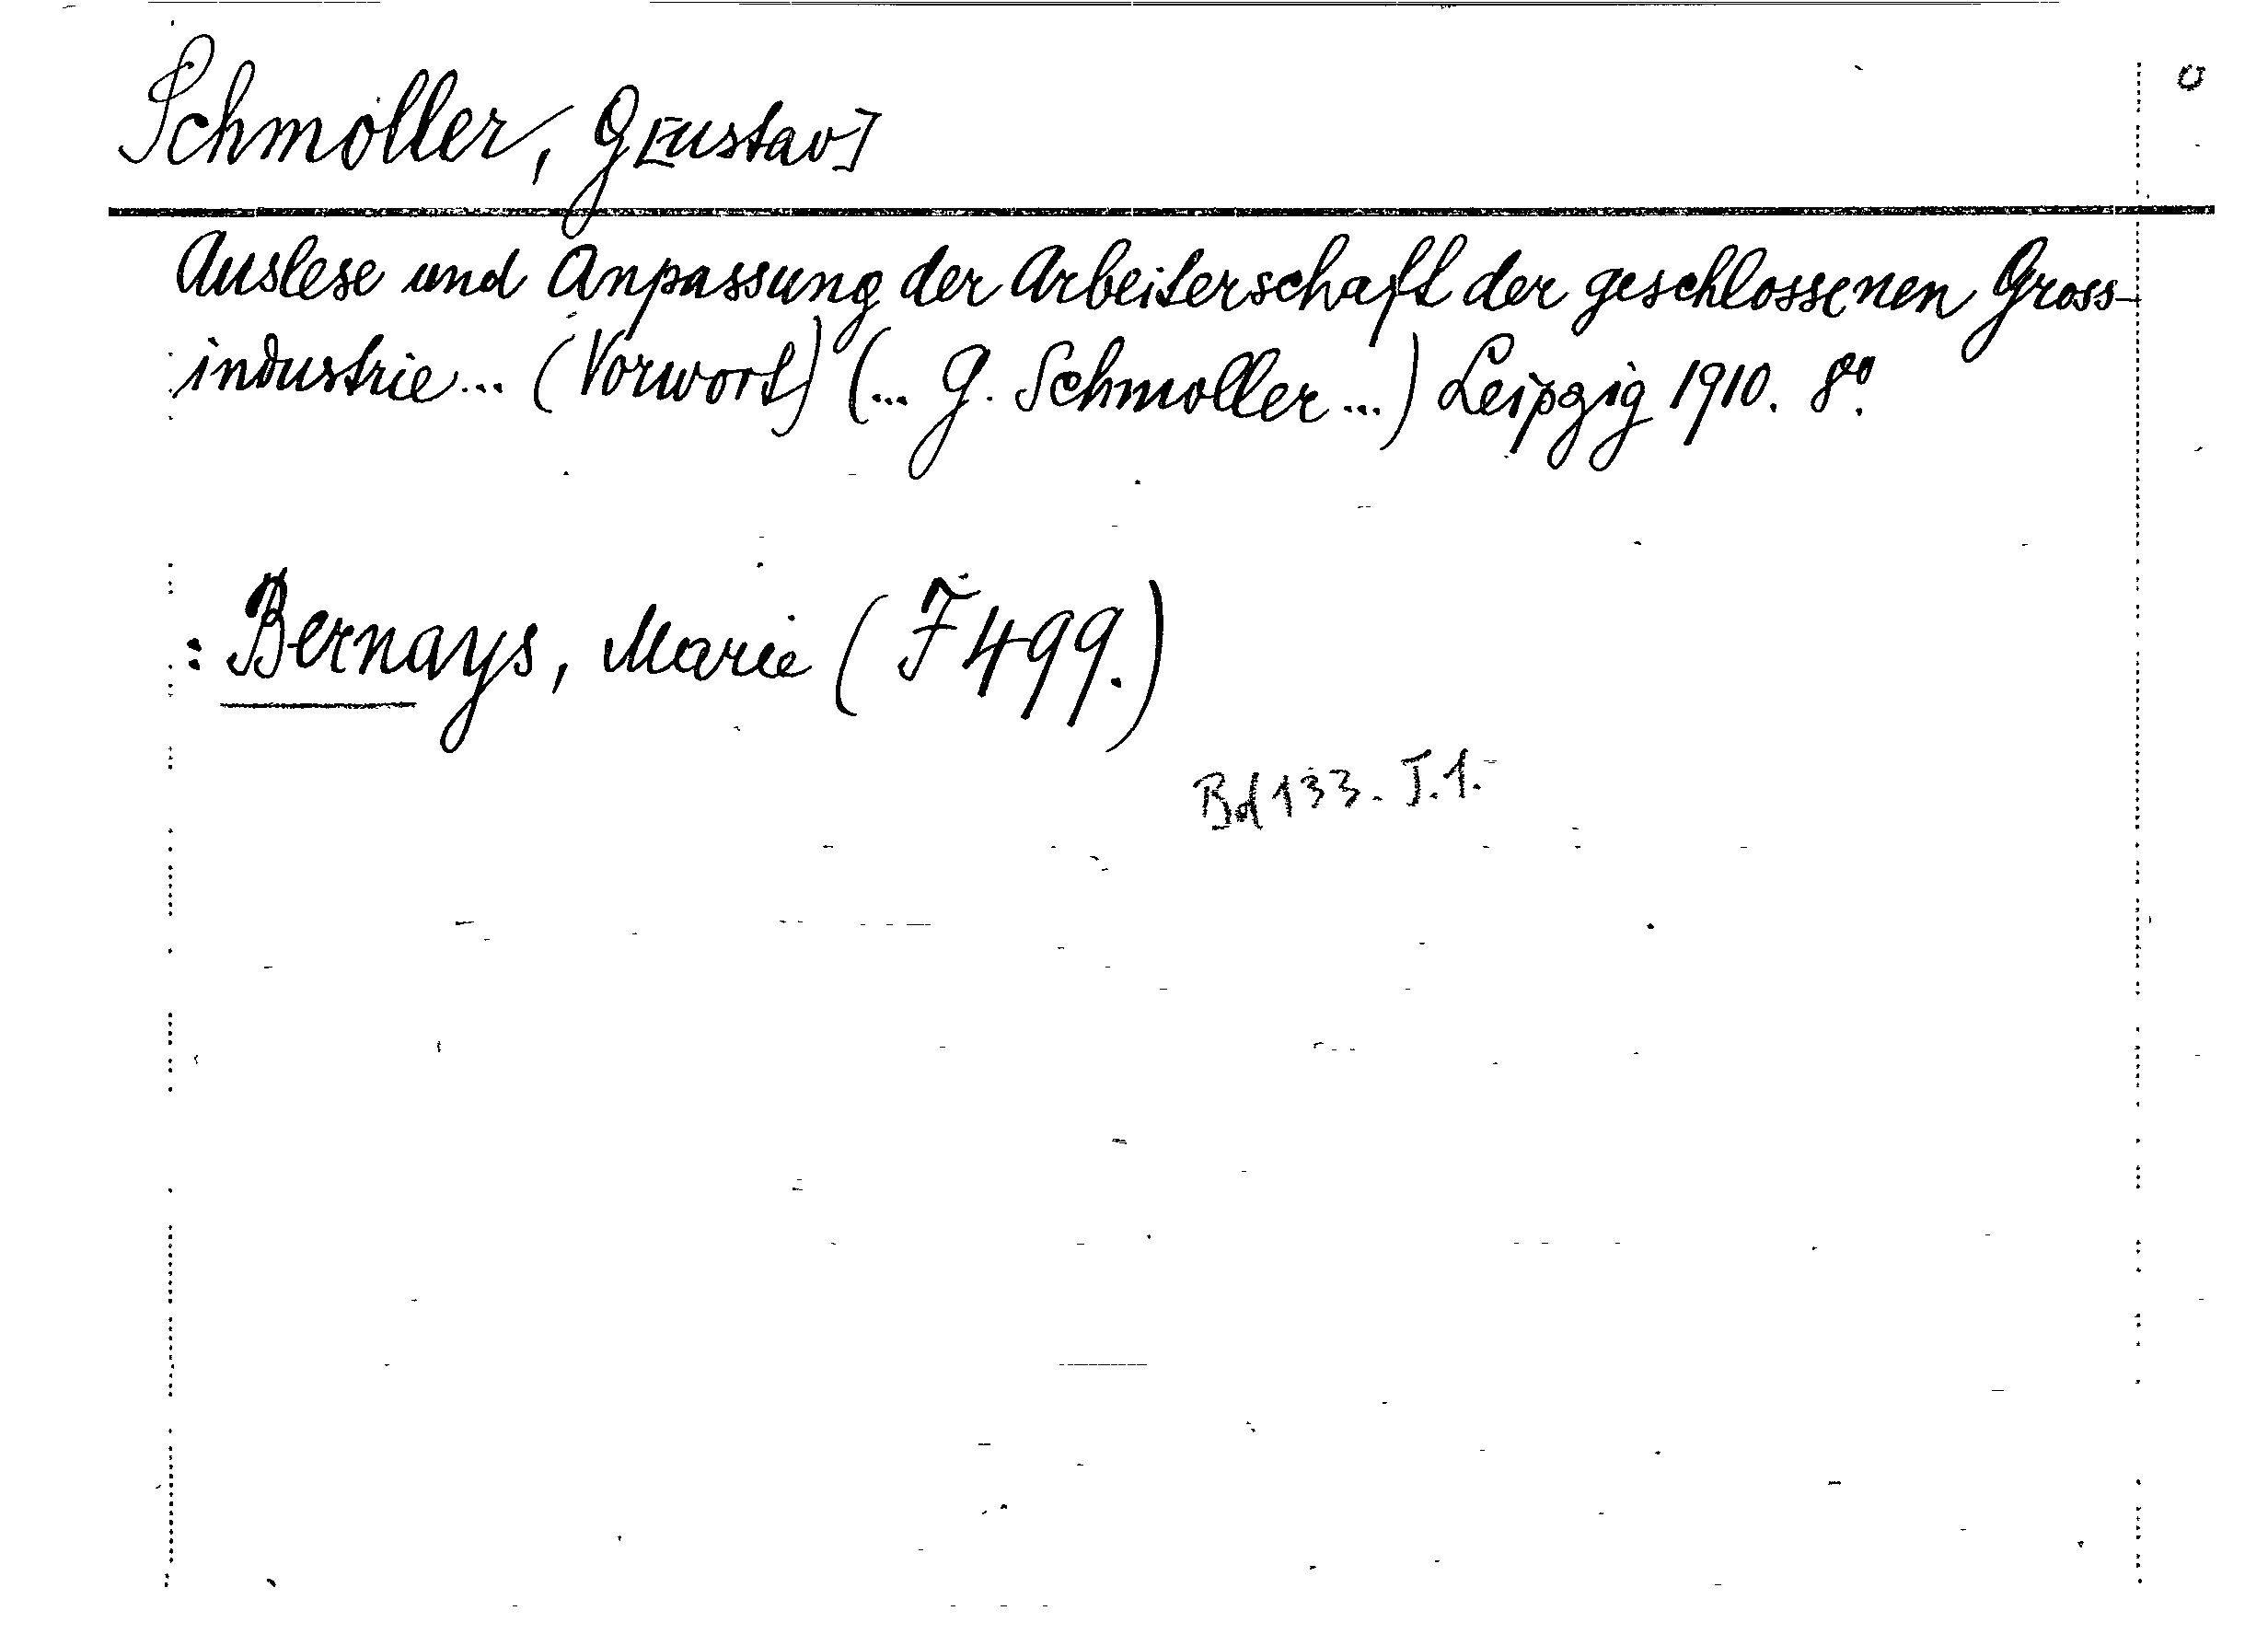 Schmoller, G[ustav]
Auslese und Anpassung der Arbeiterschaft der geschlossenen Gross-
industrie... (Vorwort) (... G. Schmoller...) Leipzig 1910. 8º.
: Bernays, Marie (F 499.)
Bd 133. T. 1.